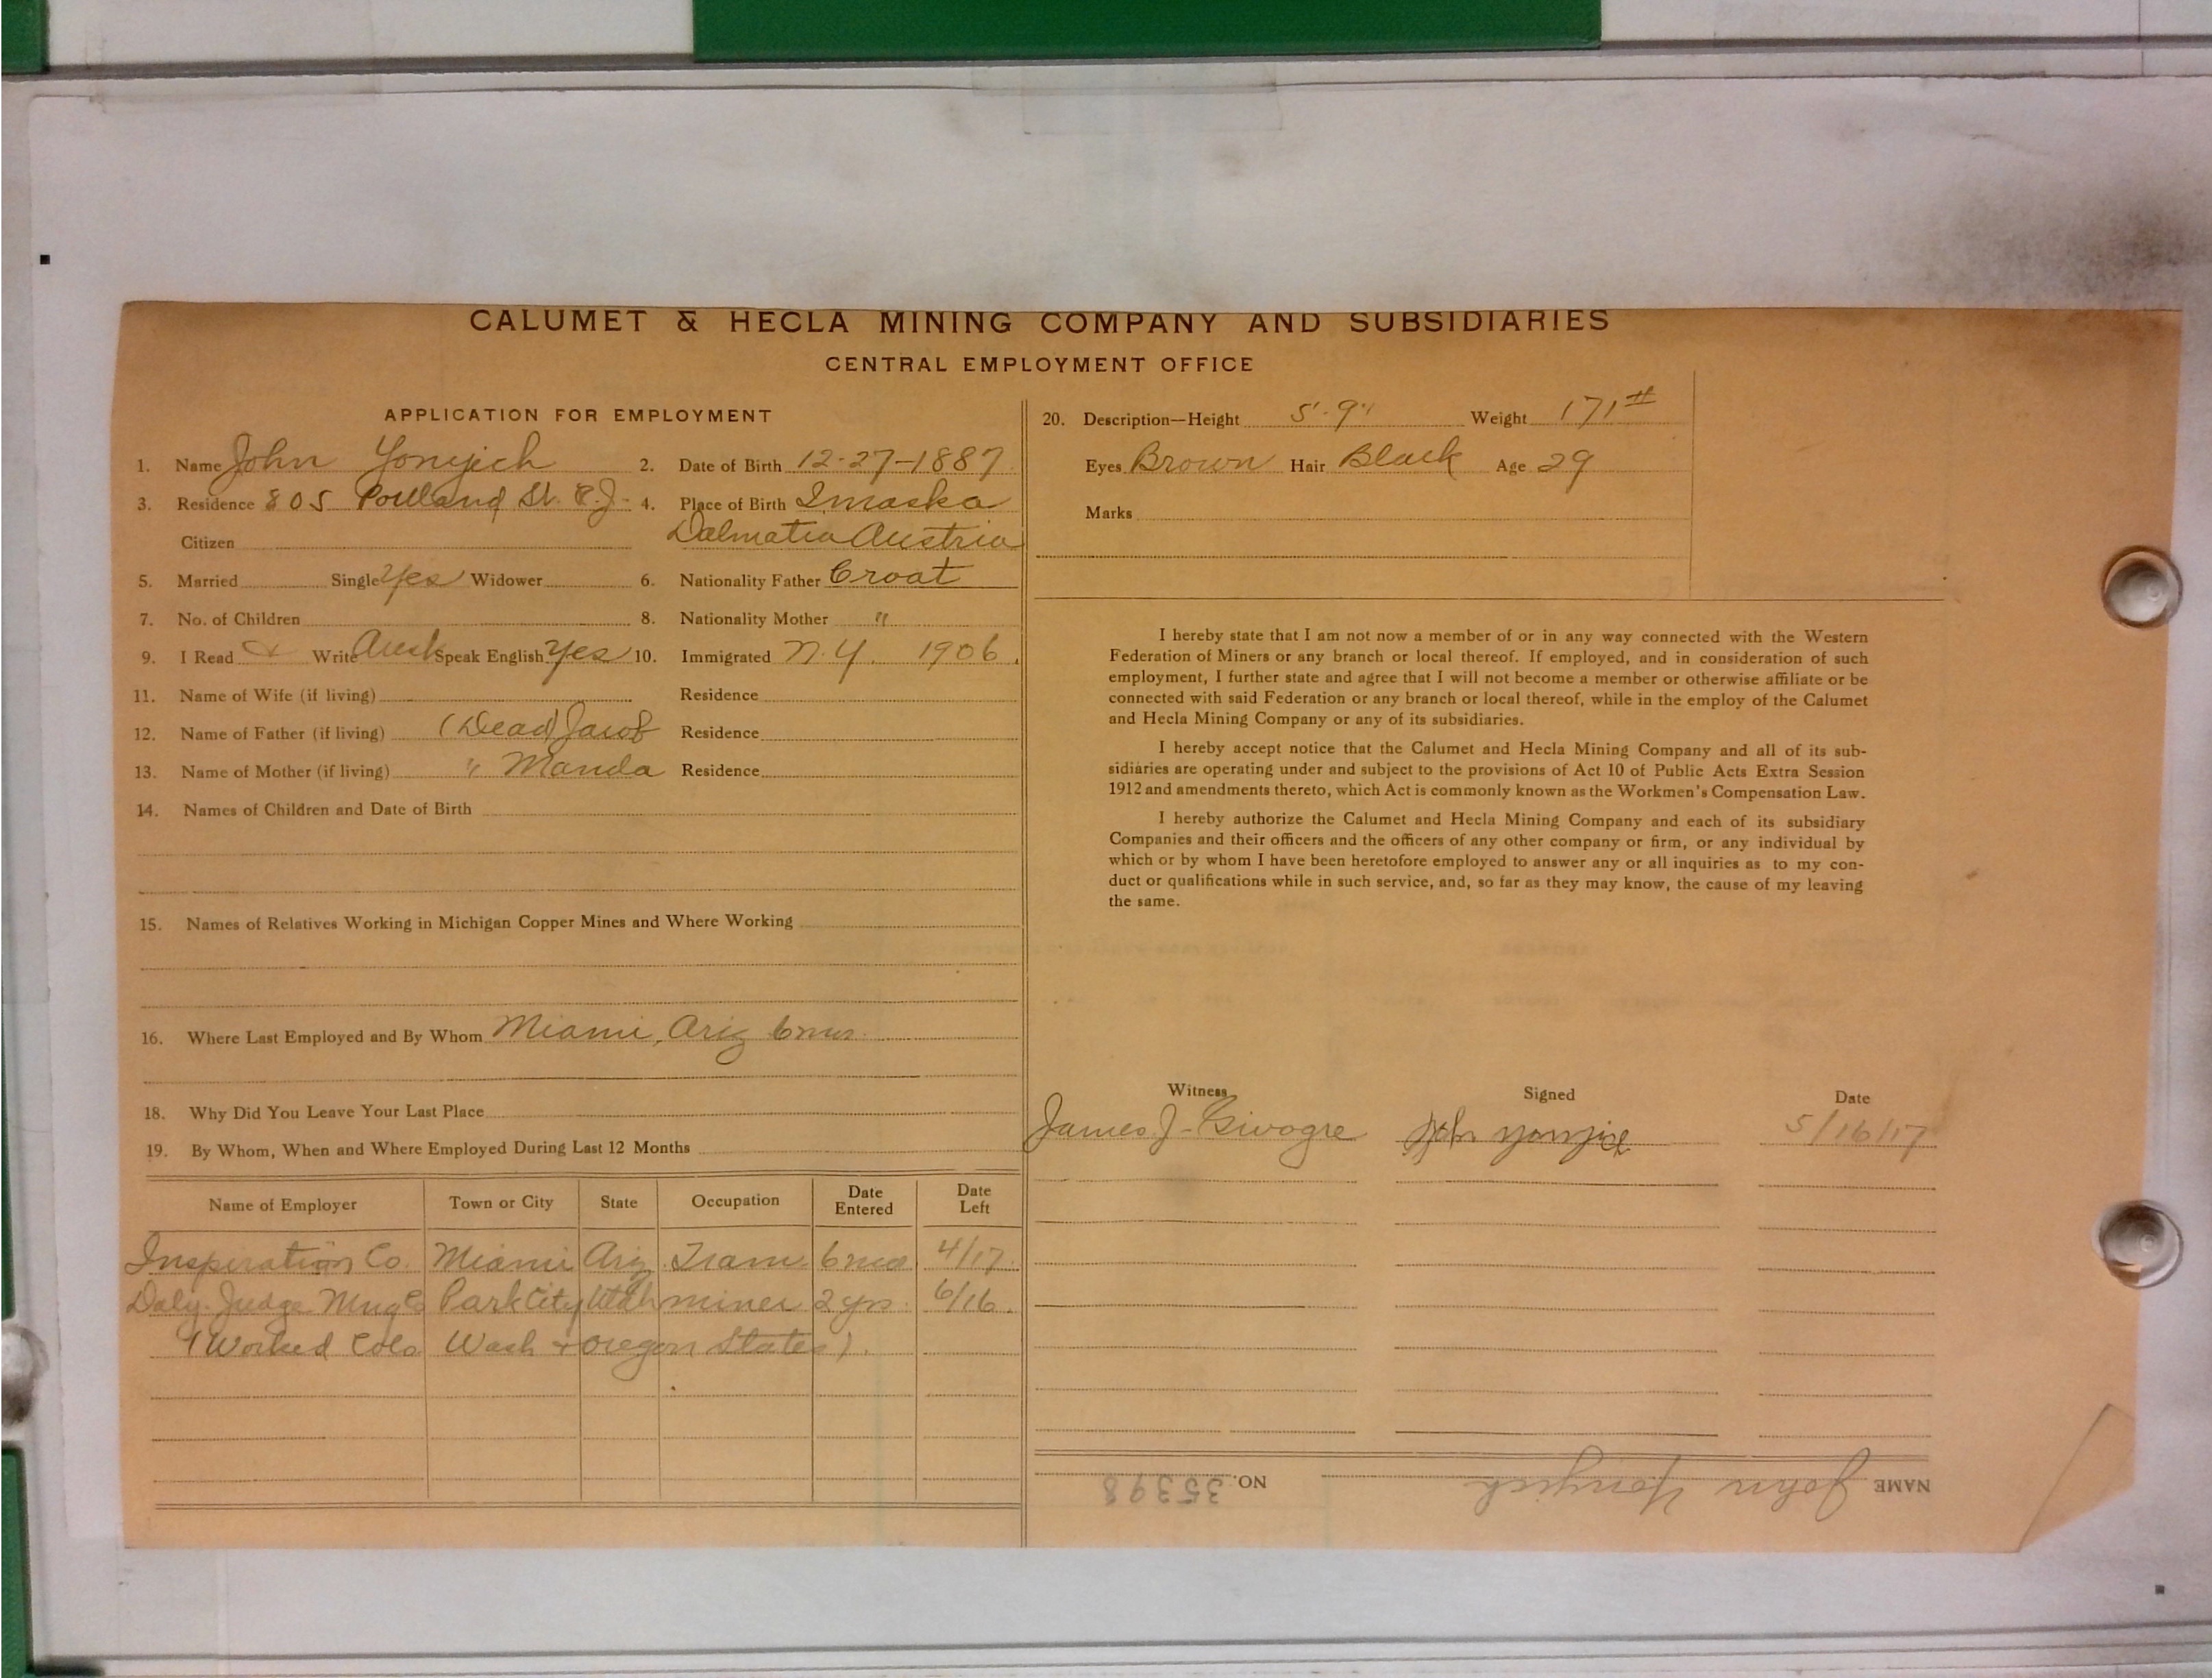 CALUMET & HECLA MINING COMPANY AND SUBSIDIARIES
CENTRAL EMPLOYMENT OFFICE
APPLICATION FOR EMPLOYMENT
1. Name John Yonyich 2. Date of Birth 12-27-1887
3. Residence 805 Portland St. 4. Place of Birth Imoska
Citizen Dalmatia Austria
5. Married Single Yes Widower 6. Nationality Father Croat
7. No. of Children 8. Nationality Mother "
9. I Read & Write Aust Speak English Yes 10. Immigrated N.Y. 1906.
11. Name of Wife (if living) Residence
12. Name of Father (if living) (Dead) Jacob Residence
13. Name of Mother (if living) " Manda Residence
14. Names of Children and Date of Birth
15. Names of Relatives Working in Michigan Copper Mines and Where Working
16. Where Last Employed and By Whom Miami, Ariz 6 mos.
18. Why Did You Leave Your Last Place
19. By Whom, When and Where Employed During Last 12 Months
Name of Employer Town or City State Occupation Date Entered Date Left
Inspiration Co. Miami Ariz. Tram. 6 mos 4/17.
Daly-Judge Mng Co Park City Utah miner 2 yrs. 6/16.
(Worked Colo Wash + Oregon States).
20. Description—Height 5'-9" Weight 171#
Eyes Brown Hair Black Age 29
Marks
I hereby state that I am not now a member of or in any way connected with the Western
Federation of Miners or any branch or local thereof. If employed, and in consideration of such
employment, I further state and agree that I will not become a member or otherwise affiliate or be
connected with said Federation or any branch or local thereof, while in the employ of the Calumet
and Hecla Mining Company or any of its subsidiaries.
I hereby accept notice that the Calumet and Hecla Mining Company and all of its sub-
sidiaries are operating under and subject to the provisions of Act 10 of Public Acts Extra Session
1912 and amendments thereto, which Act is commonly known as the Workmen's Compensation Law.
I hereby authorize the Calumet and Hecla Mining Company and each of its subsidiary
Companies and their officers and the officers of any other company or firm, or any individual by
which or by whom I have been heretofore employed to answer any or all inquiries as to my con-
duct or qualifications while in such service, and, so far as they may know, the cause of my leaving
the same.
Witness Signed Date
James J. John 5/16/17
NAME John Yonyich NO. 35398